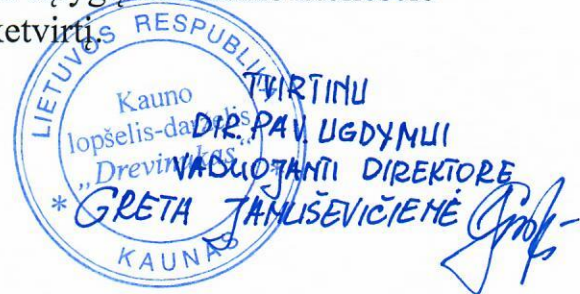 ketvirtį.
LIETUVOS RESPUBLIKA
Kauno
lopšelis-darželis
„Drevinukas“
* KAUNAS *
TVIRTINU
DIR. PAV. UGDYMUI
VADUOJANTI DIREKTORĘ
GRETA JANUŠEVIČIENĖ